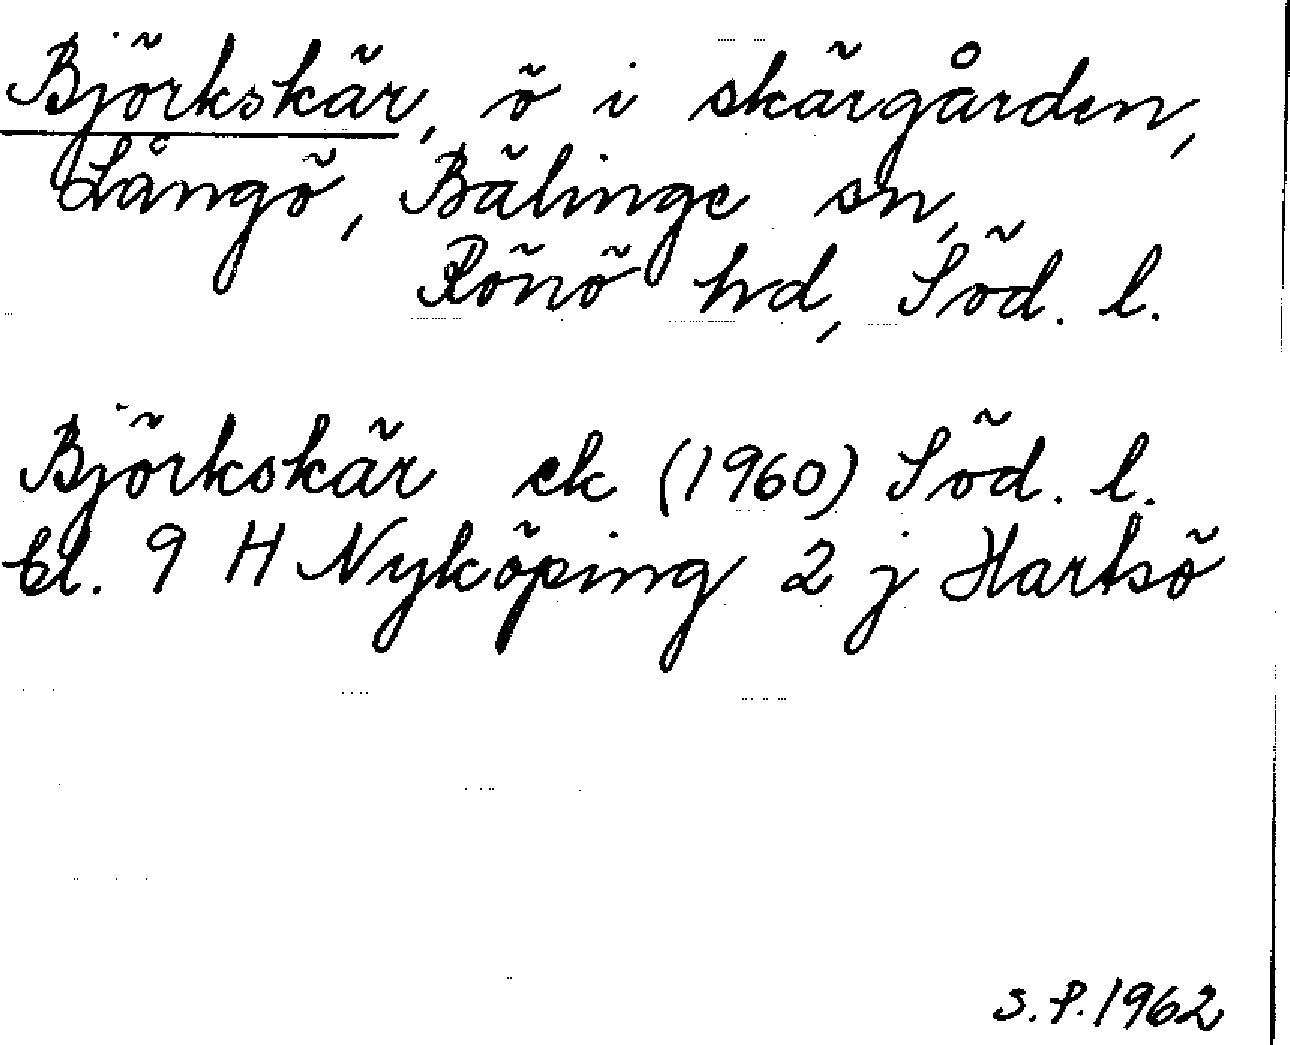 Björkskär, ö i skärgården,
Långö, Bälinge sn,
Rönö hd, Söd. l.
Björkskär ek (1960) Söd. l.
bl. 9 H Nyköping 2 j Hartsö
S.P. 1962